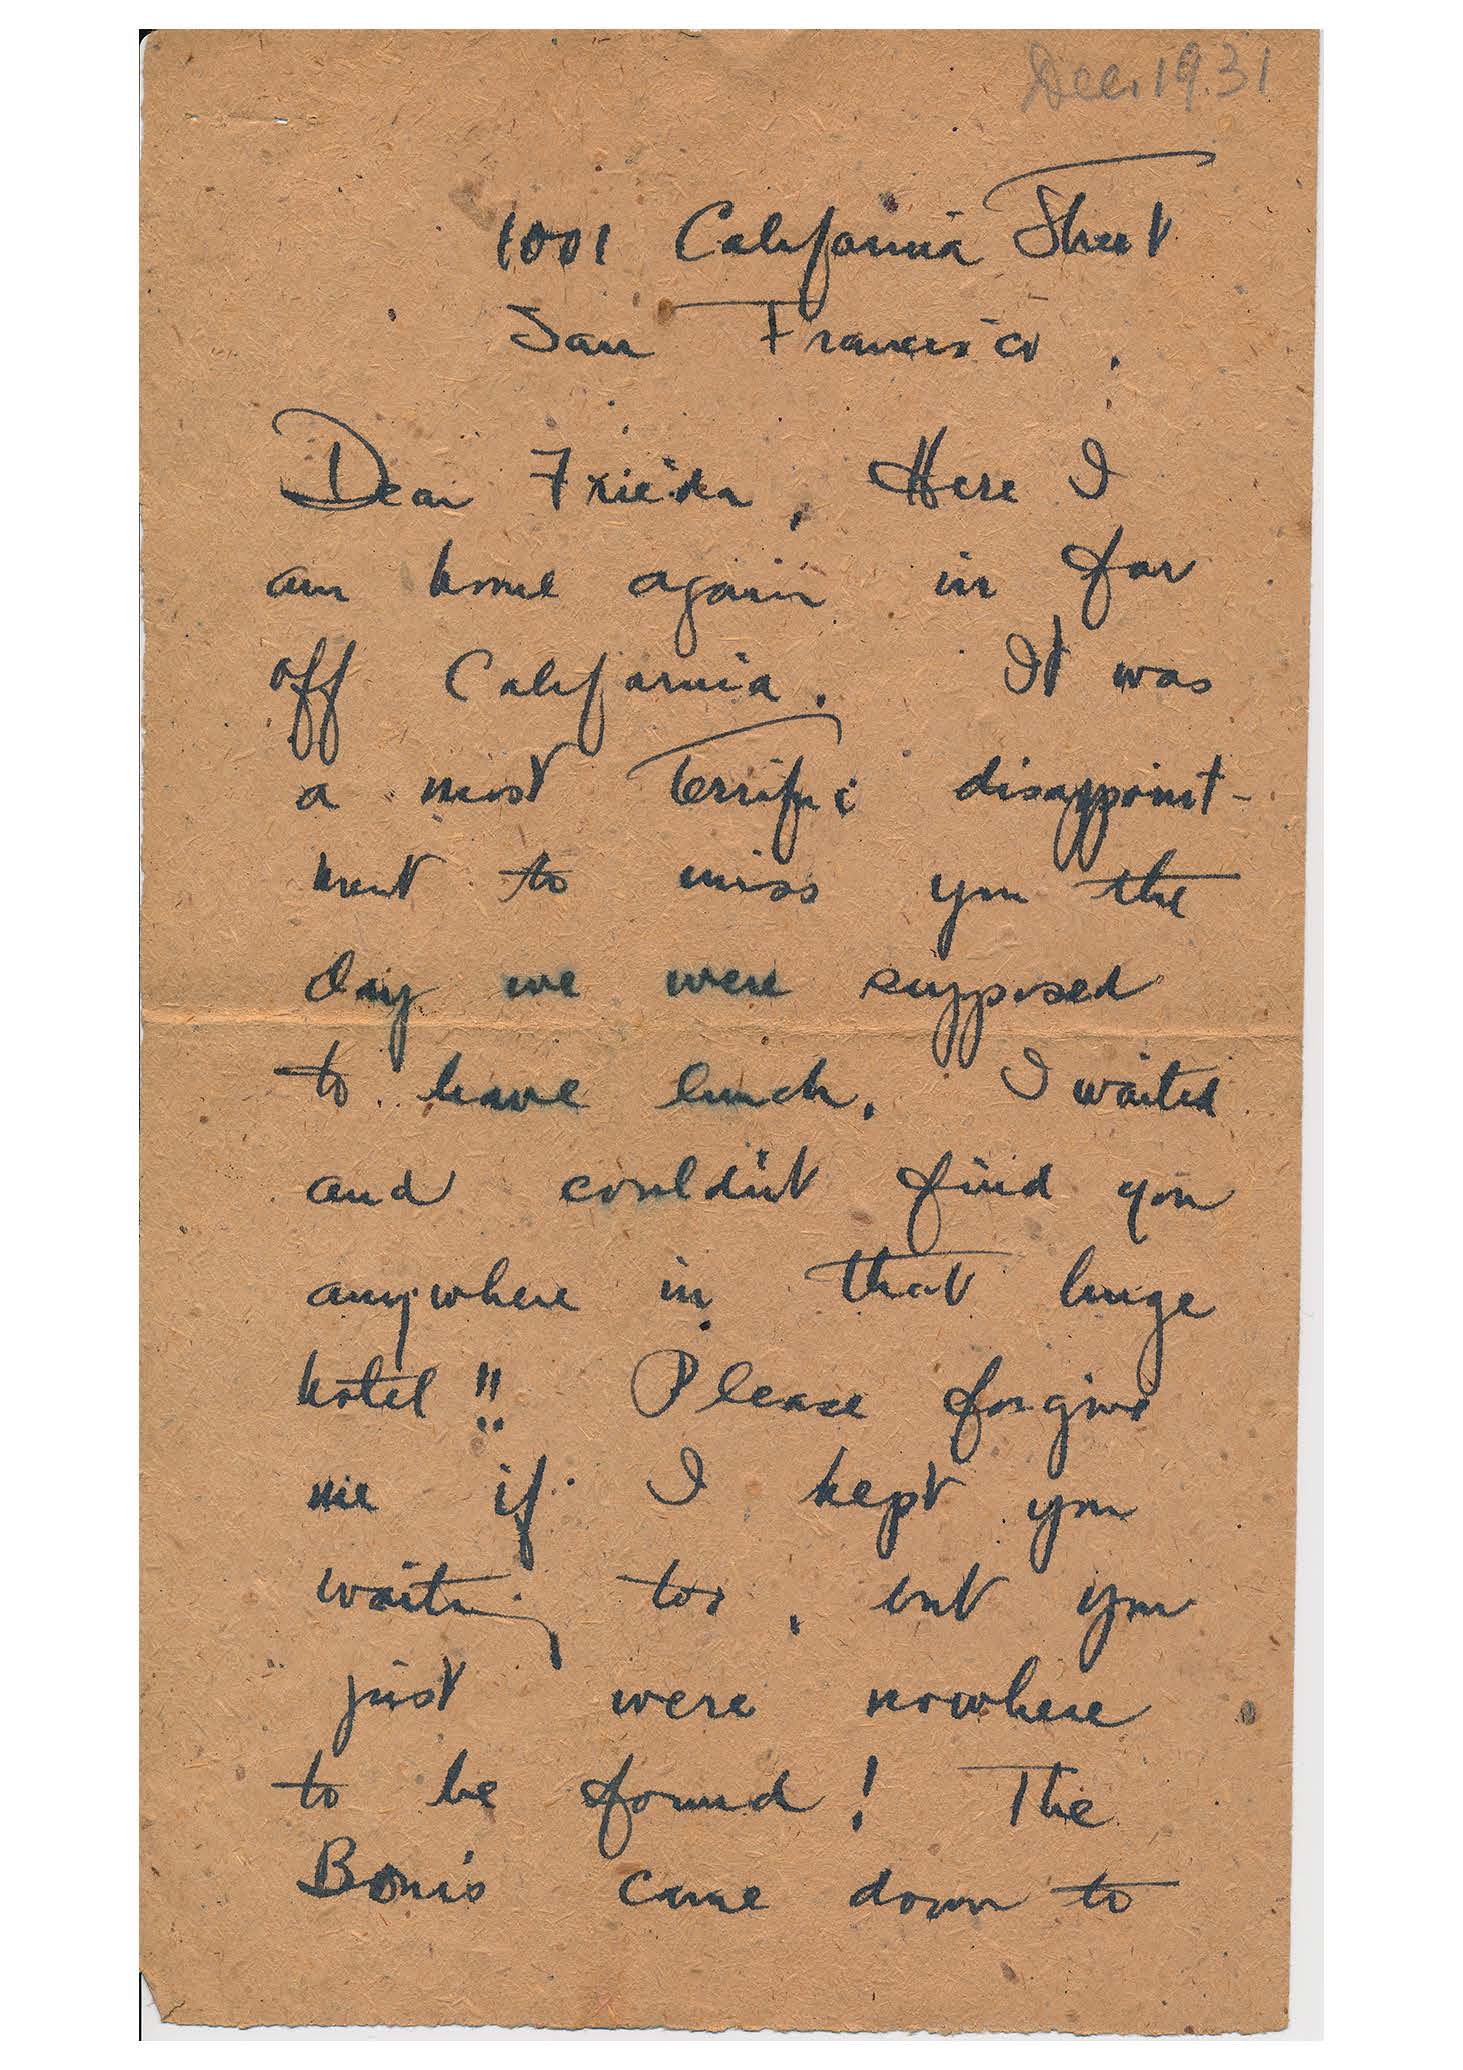 Dec. 1931
1001 California Street
San Francisco.
Dear Frieda, Here I
am home again in far
off California. It was
a most terrific disappoint-
ment to miss you the
day we were supposed
to have lunch. I waited
and couldn't find you
anywhere in that huge
hotel!! Please forgive
me if I kept you
waiting too, but you
just were nowhere
to be found! The
came down to